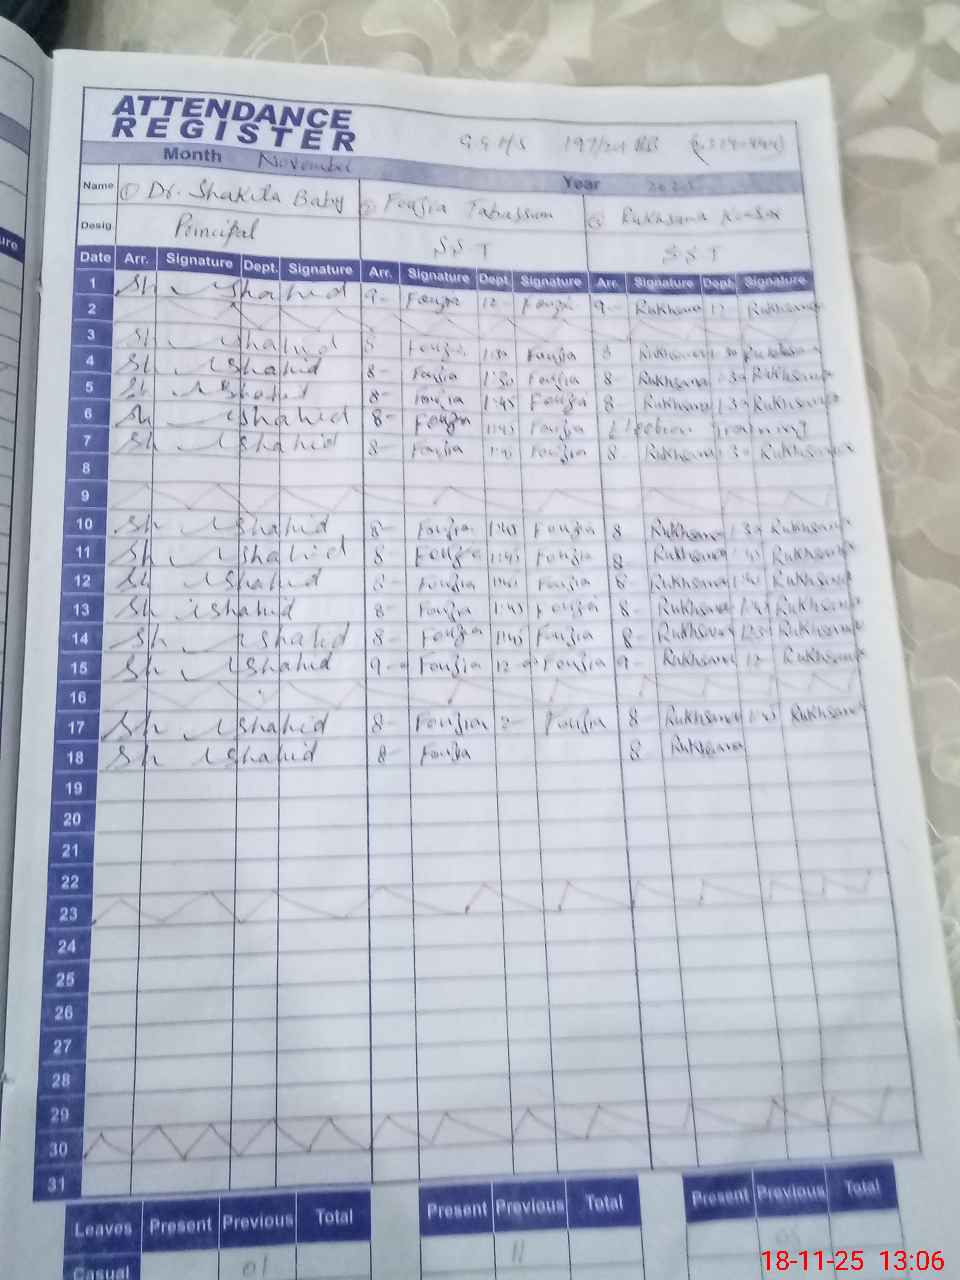 ATTENDANCE
REGISTER
GGHS 197/
Month November Year 2025
Name ① Dr. Shakila Baby ② Fouzia Tabassum ③ Rukhsana Kousar
Desig. Principal SST SST
Date Arr. Signature Dept. Signature Arr. Signature Dept. Signature Arr. Signature Dept. Signature
1 Shahid 9- Fouzia 12 Fouzia 9- Rukhsana 12 Rukhsana
2
3 Sh Shahid 8 Fouzia 1:30 Fouzia 8 Rukhsana Rukhsana
4 Sh Shahid 8- Fouzia 1:30 Fouzia 8- Rukhsana Rukhsana
5 Sh Shahid 8- Fouzia 1:45 Fouzia 8- Rukhsana Rukhsana
6 Sh Shahid 8- Fouzia 1:45 Fouzia Election Training
7 Sh Shahid 8- Fouzia Fouzia 8- Rukhsana Rukhsana
8
9
10 Sh Shahid 8- Fouzia 1:45 Fouzia 8 Rukhsana Rukhsana
11 Sh Shahid 8 Fouzia 1:45 Fouzia 8 Rukhsana Rukhsana
12 Sh Shahid 8- Fouzia Fouzia 8- Rukhsana Rukhsana
13 Sh Shahid 8- Fouzia 1:45 Fouzia 8- Rukhsana Rukhsana
14 Sh Shahid 8- Fouzia 1:45 Fouzia 8- Rukhsana Rukhsana
15 Sh Shahid 9- Fouzia 12- Fouzia 9- Rukhsana 12- Rukhsana
16
17 Sh Shahid 8- Fouzia 2- Fouzia 8- Rukhsana Rukhsana
18 Sh Shahid 8- Fouzia 8 Rukhsana
19
20
21
22
23
24
25
26
27
28
29
30
31
Leaves Present Previous Total Present Previous Total Present Previous Total
Casual 01 11
18-11-25 13:06